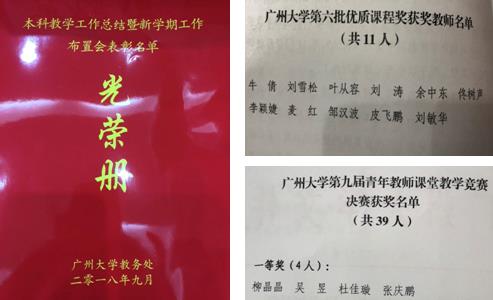 本科教学工作总结暨新学期工作
布置会表彰名单
光荣册
广州大学教务处
二零一八年九月
广州大学第六批优质课程奖获奖教师名单
(共11人)
牛 倩 刘雪松 叶从容 刘 涛 余中东 佟树声
李颖婕 麦 红 邹汉波 皮飞鹏 刘敏华
广州大学第九届青年教师课堂教学竞赛
决赛获奖名单
(共39人)
一等奖(4人):
柳晶晶 吴 昱 杜佳璇 张庆鹏